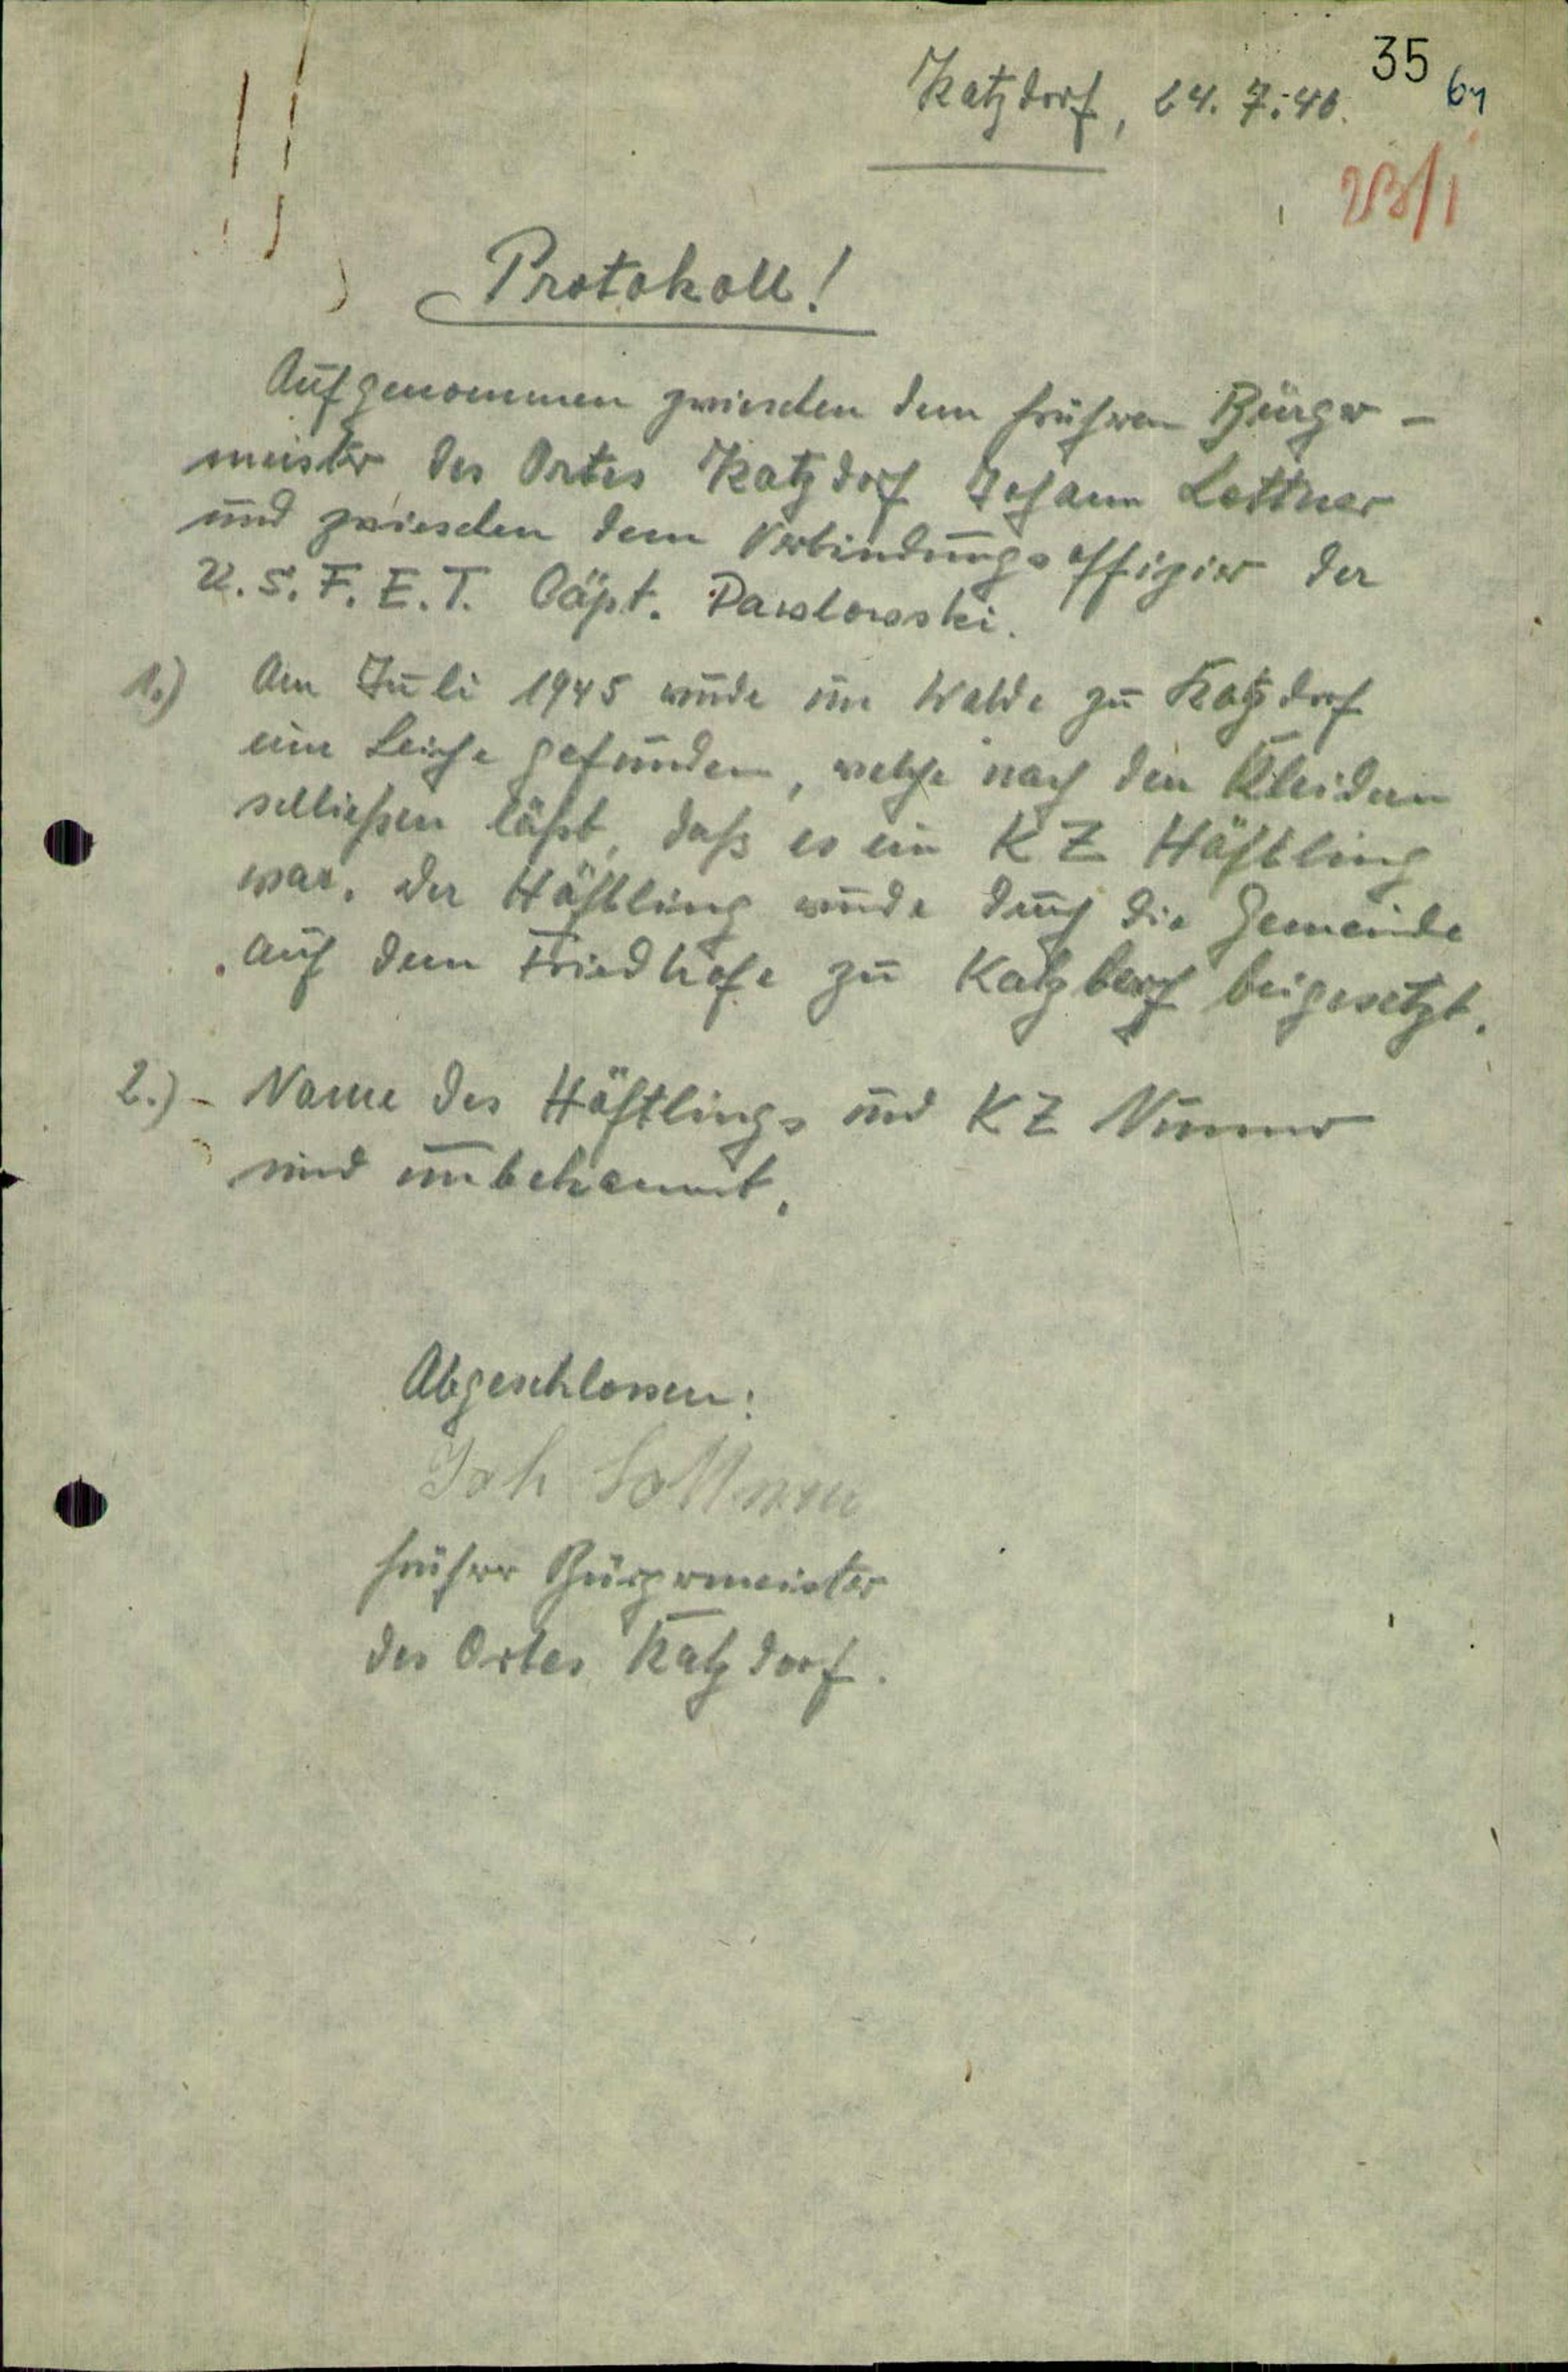 35 64
Katzdorf, 24. 7. 46.
23/1
Protokoll!
Aufgenommen zwischen dem frühren Bürger-
meister des Ortes Katzdorf Johann Lottner
und zwischen dem Verbindungsoffizier der
U.S.F.E.T. Cäpt. Pawlowski.
1.) Am Juli 1945 wurde im Walde zu Katzdorf
eine Leiche gefunden, welche nach den Kleidern
schließen läßt, daß es ein KZ Häftling
war. Der Häftling wurde durch die Gemeinde
auf dem Friedhofe zu Katzdorf beigesetzt.
2.) - Name des Häftlings und KZ Nummer
sind unbekannt.
Abgeschlossen:
Joh Lottner
früher Bürgermeister
des Ortes Katzdorf.